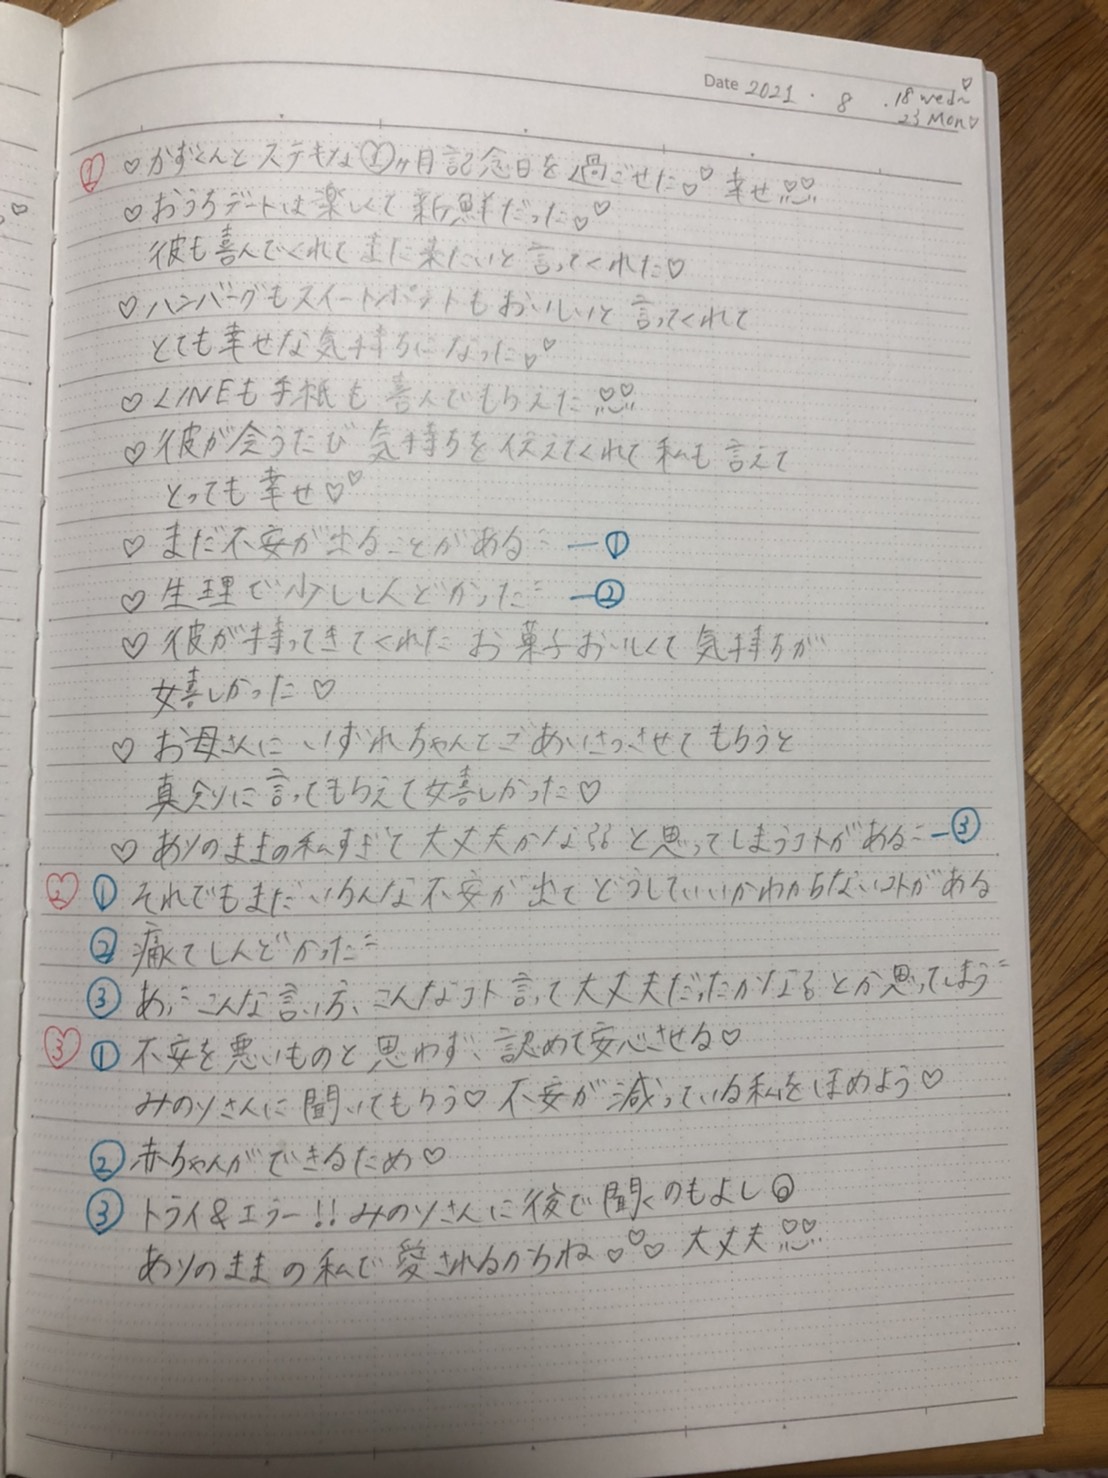 Date 2021 . 8 . 18 wed~♡
23 Mon♡
① ♡ かずくんとステキな①ヶ月記念日を過ごせた♡♡ 幸せ♡♡
♡ おうちデートは楽しくて新鮮だった♡♡
彼も喜んでくれてまた来たいと言ってくれた♡
♡ ハンバーグもスイートポテトもおいしいと言ってくれて
とても幸せな気持ちになった♡♡
♡ LINEも手紙も喜んでもらえた♡♡
♡ 彼が会うたび気持ちを伝えてくれて私も言えて
とっても幸せ♡♡
♡ まだ不安が出ることがある ー①
♡ 生理で少ししんどかった ー②
♡ 彼が持ってきてくれたお菓子おいしくて気持ちが
嬉しかった♡
♡ お母さんにいずれちゃんとごあいさつさせてもらうと
真剣に言ってもらえて嬉しかった♡
♡ ありのままの私すぎて大丈夫かなぁと思ってしまうコトがある ー③
② ① それでもまだいろんな不安が出てどうしていいかわからないコトがある
② 痛くてしんどかった
③ あっ、こんな言い方、こんなコト言って大丈夫だったかなぁとか思ってしまう
③ ① 不安を悪いものと思わず、認めて安心させる♡
みのりさんに聞いてもらう♡ 不安が減っている私をほめよう♡
② 赤ちゃんができるため♡
③ トライ&エラー!! みのりさんに後で聞くのもよし
ありのままの私で愛されるからね♡♡♡ 大丈夫♡♡